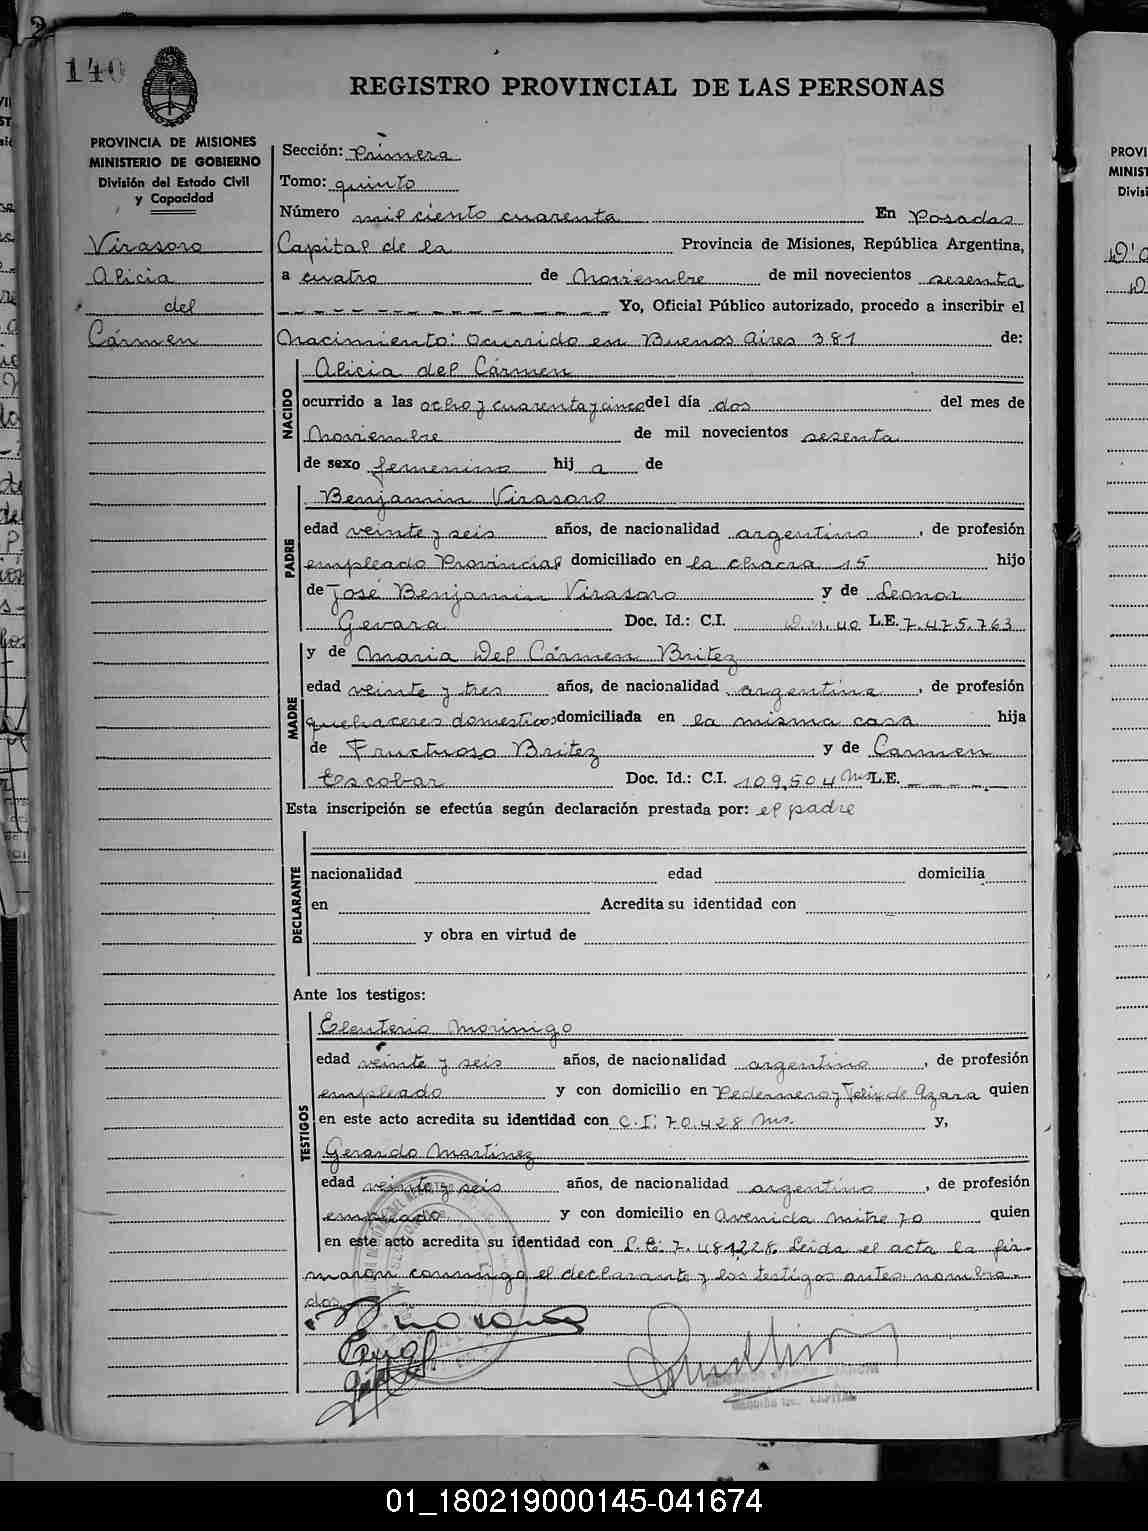 140
REGISTRO PROVINCIAL DE LAS PERSONAS
PROVINCIA DE MISIONES
MINISTERIO DE GOBIERNO
División del Estado Civil
y Capacidad
Virasoro
Alicia
del
Cármen
Sección: Primera
Tomo: quinto
Número mil ciento cuarenta En Posadas
Capital de la Provincia de Misiones, República Argentina,
a cuatro de Noviembre de mil novecientos sesenta
Yo, Oficial Público autorizado, procedo a inscribir el
Nacimiento: Ocurrido en Buenos Aires 381 de:
NACIDO
Alicia del Cármen
ocurrido a las ocho y cuarenta y cinco del día dos del mes de
Noviembre de mil novecientos sesenta
de sexo femenino hij a de
PADRE
Benjamin Virasoro
edad veinte y seis años, de nacionalidad argentino, de profesión
empleado Provincial domiciliado en la chacra 15 hijo
de José Benjamin Virasoro y de Leonor
Gevara Doc. Id.: C.I. D.M. 40 L.E. 7.475.763
MADRE
y de Maria Del Cármen Britez
edad veinte y tres años, de nacionalidad argentina, de profesión
quehaceres domesticos domiciliada en la misma casa hija
de Fructuoso Britez y de Carmen
Escobar Doc. Id.: C.I. 109.504 Mns L.E.
Esta inscripción se efectúa según declaración prestada por: el padre
DECLARANTE
nacionalidad edad domicilia
en Acredita su identidad con
y obra en virtud de
Ante los testigos:
TESTIGOS
Eleuterio Morinigo
edad veinte y seis años, de nacionalidad argentino, de profesión
empleado y con domicilio en Pedernera y Felix de Azara quien
en este acto acredita su identidad con C.I: 70.428 Mns. y,
Gerardo Martinez
edad veinte y seis años, de nacionalidad argentino, de profesión
empleado y con domicilio en Avenida Mitre 70 quien
en este acto acredita su identidad con L.E: 7.481.228. Leida el acta la fir-
maron conmigo el declarante y los testigos antes nombra-
dos
Virasoro
01_180219000145-041674